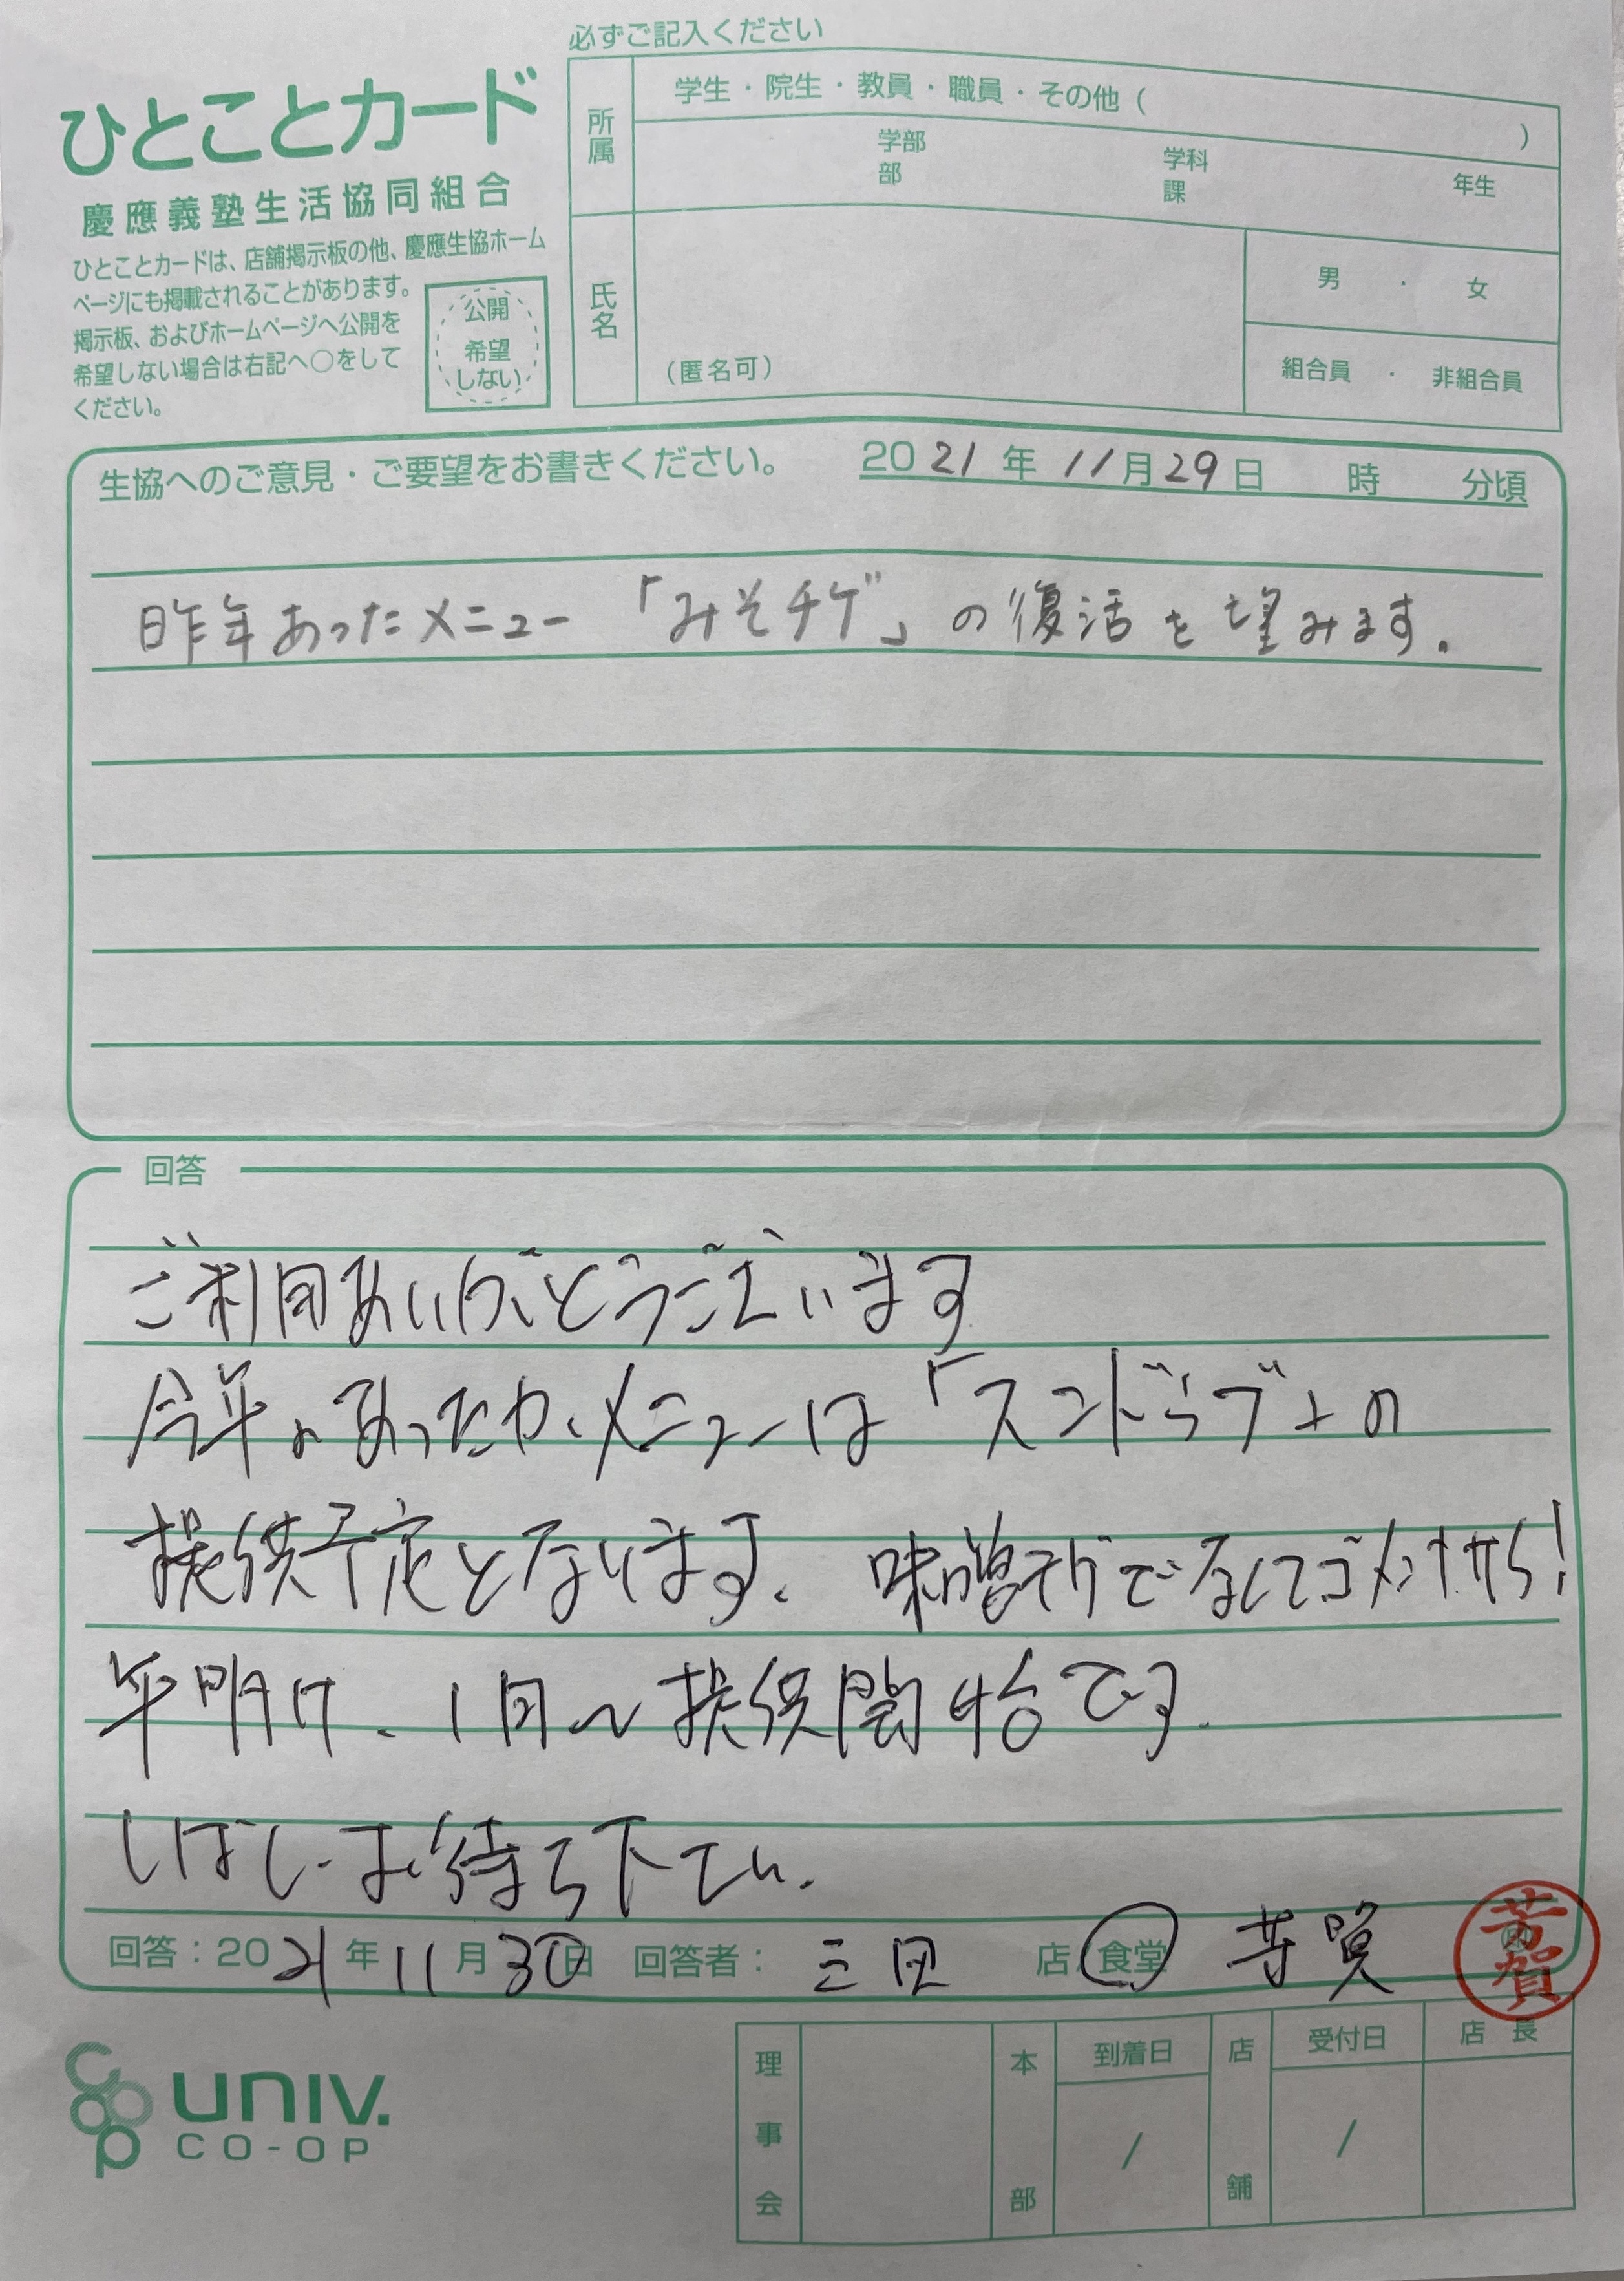 必ずご記入ください
ひとことカード
慶應義塾生活協同組合
ひとことカードは、店舗掲示板の他、慶應生協ホーム
ページにも掲載されることがあります。
掲示板、およびホームページへ公開を
希望しない場合は右記へ○をして
ください。
公開
希望
しない
所属
学生・院生・教員・職員・その他（　）
学部 学科
部 課 年生
氏名
（匿名可）
男 ・ 女
組合員 ・ 非組合員
生協へのご意見・ご要望をお書きください。 2021年11月29日 時 分頃
昨年あったメニュー「みそチゲ」の復活を望みます。
回答
ご利用ありがとうございます
今年のあったかメニューは「スンドゥブ」の
提供予定となります。味噌チゲでなくてゴメンナサイ!
年明け、1月〜提供開始です。
しばし お待ち下さい。
回答：2021年11月30日 回答者： 三田 店 食堂 芳賀
芳賀
univ.
CO-OP
理事会
本部
到着日
/
店舗
受付日
/
店長